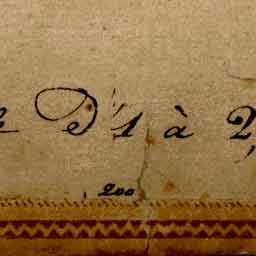 D'1 à 2,
200